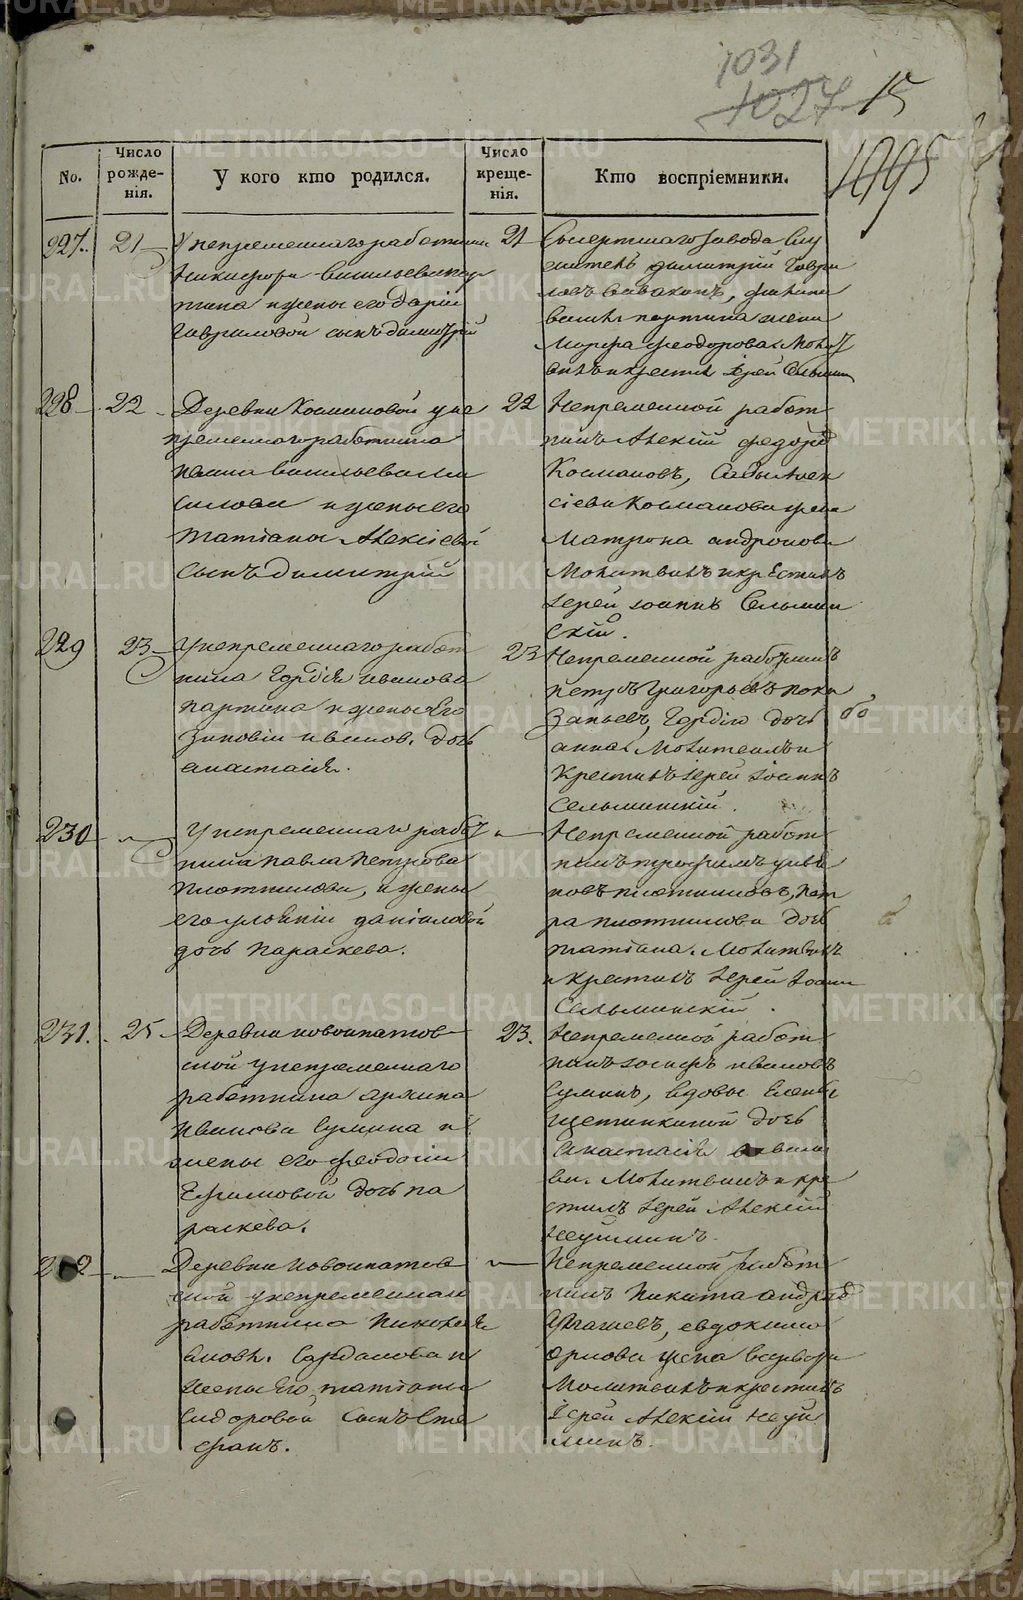 1031
1027
15
1095
No.
Число рожде-нія.
У кого кто родился.
Число креще-нія.
Кто воспріемники.
227.
21
У непременнаго работника
Никифора Васильева пар
тина и жены его Даріи
Гавриловой сынъ димитрій
21
Сысертскаго завода слу
житель димитрій Гаври
ловъ
партина жена
Марфа феодорова. Молит
вилъ и крестилъ Іерей
228
22
Деревни Космаковой у не
пременнаго работника
Ивана Васильева
и жены его
татіаны Алексіевой
сынъ димитрій
22
Непременной работ
никъ Алексій федоровъ
Космаковъ, Алек
сіева Космакова жена
Матрона андронова
Молитвилъ и крестилъ
Іерей Іоаннъ Сельмин
скій.
229
23
У непременнаго работ
ника Гордія иванова
партина и жены Его
Зиновіи иванов. дочь
анастасія.
23
Непременной работникъ
петръ Григорьевъ
Гордія дочь
анна. Молитвилъ и
Крестилъ Іерей Іоаннъ
Сельминскій.
230
У непременнаго работ
ника павла петрова
плотникова, и жены
его даніиловой
дочь параскева.
Непременной работ
никъ трофимъ
плотниковъ, пет
ра плотникова дочь
татіана. Молитвилъ
и Крестилъ Іерей Іоаннъ
Сельминскій.
231.
25
Деревни новоипатов
ской у непременнаго
работника архипа
Иванова Сумина и
жены его феодосіи
Ефимовой дочь па
раскева.
23.
Непременной работ
никъ иосифъ ивановъ
Суминъ, вдовы Елены
щетинкиной дочь
Анастасія
Молитвилъ и кре
стилъ Іерей Алексій
Неуйминъ.
232
Деревни новоипатов
ской у непременнаго
работника Николая
и
жены Его татіаны
Сидоровой сынъ Сте
фанъ.
Непременной работ
никъ Никита андреевъ
евдокима
орлова жена
Молитвилъ и крестилъ
Іерей Алексій Неуй
минъ.
METRIKI.GASO-URAL.RU